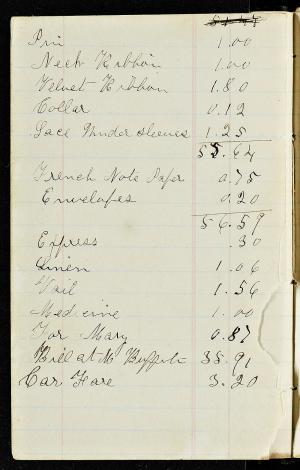 Pin 1.00
Neck Ribbon 1.00
Velvet Ribbon 1.80
Collar 0.12
Lace Under sleeves 1.25
55.64
French Note Paper 0.75
Envelopes 0.20
56.59
Express .30
Linen 1.06
Vail 1.56
Medicine 1.00
For Mary 0.87
Bill at M 38.91
Car Fare 3.20